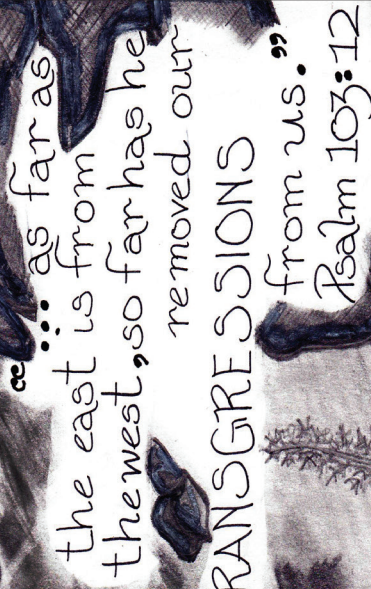 “... as far as
the east is from
the west, so far has he
removed our
RANSGRESSIONS
from us.”
Psalm 103:12